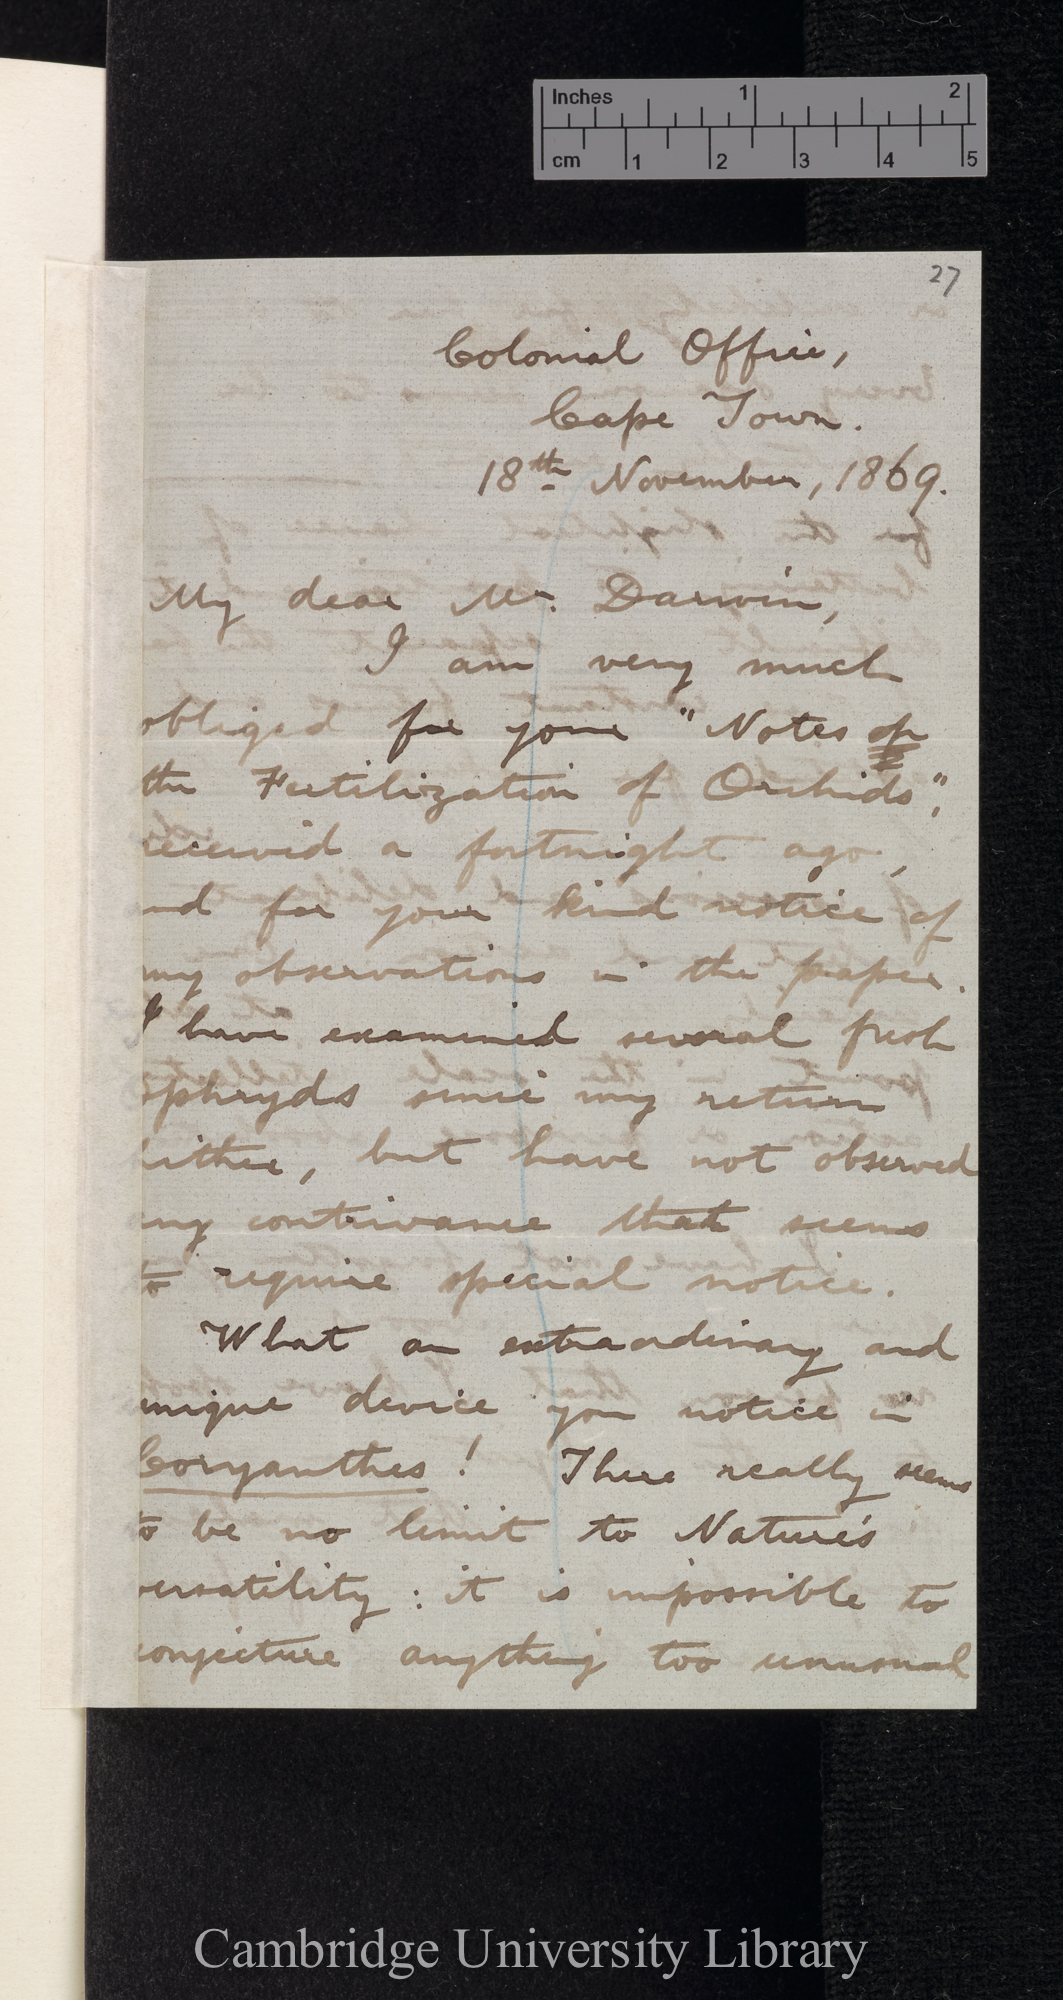 Inches 1 2
cm 1 2 3 4 5
27
Colonial Office,
Cape Town.
18th November, 1869.
My dear Mr. Darwin,
I am very much
obliged for your "Notes on
the Fertilization of Orchids",
received a fortnight ago,
and for your kind notice of
my observations in the paper.
I have examined several fresh
ophryds since my return
hither, but have not observed
any contrivance that seems
to require special notice.
What an extraordinary and
unique device you notice in
Coryanthes! There really seems
to be no limit to Nature's
versatility: it is impossible to
conjecture anything too unusual
Cambridge University Library